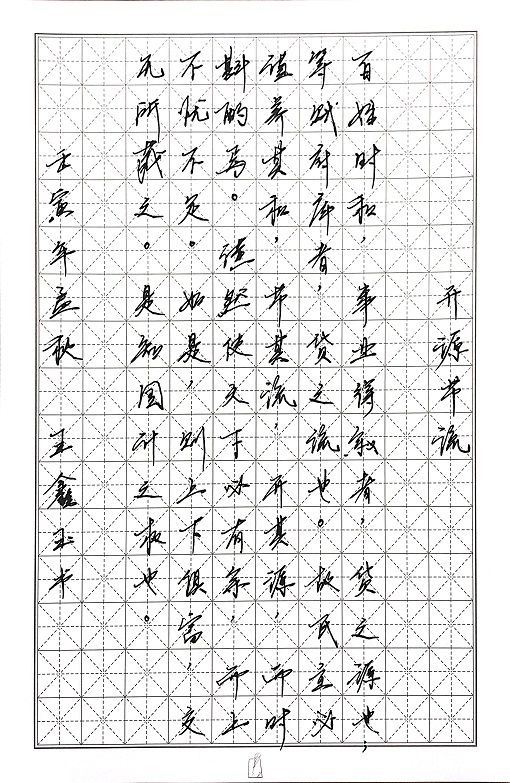 开源节流
百姓时和，事业得叙者，货之源也；
等赋府库者，货之流也。故民主必
谨养其和，节其流，开其源，而时
斟酌焉。潢然使天下必有余，而上
不忧不足。如是，则上下俱富，交
无所藏之。是知国计之极也。
壬寅年孟秋 王鑫玉书